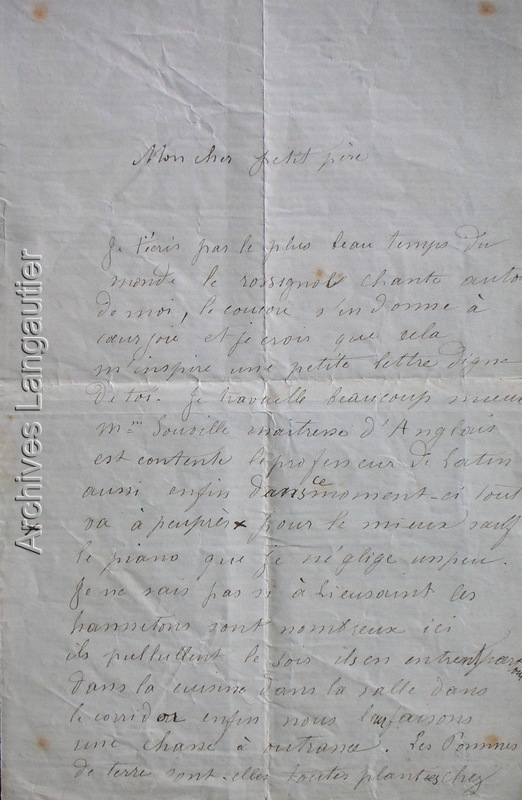 Mon cher petit père
Je t'écris par le plus beau temps du
monde le rossignol chante auto
de moi, le coucou s'en donne à
cœurjoie et je crois que cela
m'inspire une petite lettre digne
de toi. Je travaille beaucoup mieux
Mme Souville maitresse d'Anglais
est contente le professeur de Latin
aussi enfin dans ce moment-ci tout
va à peuprès pour le mieux sauf
le piano que je néglige unpeu.
Je ne sais pas si à Lieusaint les
hannetons sont nombreux ici
ils pullullent le soir ilsen entrent partout
dans la cuisine dans la salle dans
le corridor enfin nous leur faisons
une chasse à outrance. Les Pommes
de terre sont-elles toutes plantées chez
Archives Langautier